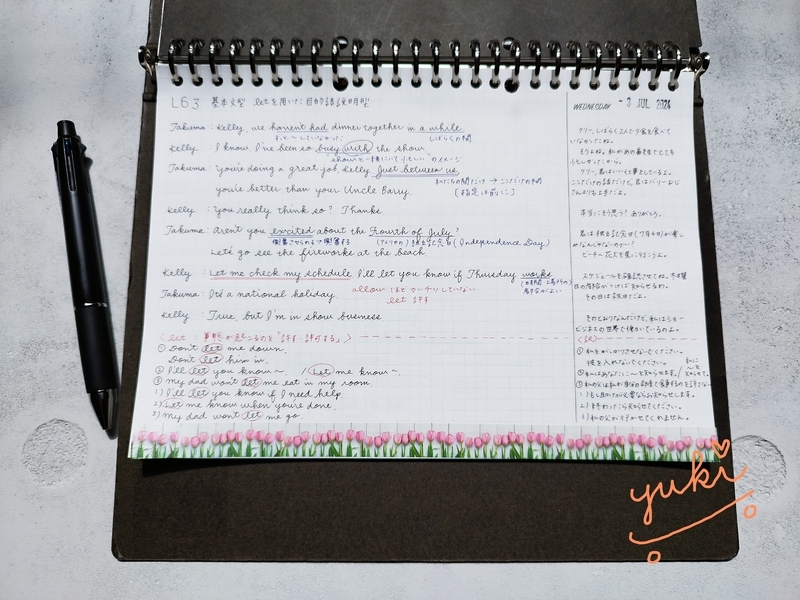 L63 基本文型 letを用いた目的語説明型
WEDNESDAY - 3 JUL 2024
Takuma : Kelly, we haven't had dinner together in a while.
ずっと〜していなかった しばらくの間
Kelly : I know I've been so busy with the show.
showと一緒にいて忙しい のイメージ
Takuma : You're doing a great job, Kelly just between us,
私たちの間だけ → ここだけの話
you're better than your Uncle Barry. [指定は前に]
Kelly : You really think so? Thanks
Takuma : Aren't you excited about the Fourth of July?
興奮させられる→興奮する (アメリカの) 独立記念日 (Independence Day)
Let's go see the fireworks at the beach.
Kelly : Let me check my schedule I'll let you know if Thursday works
Takuma : It's a national holiday.
allow ほど
していない
let 許す
Kelly : True, but I'm in show business
<let : 事態が起こるのを「許す・許可する」>
① Don't let me down.
Don't let him in.
② I'll let you know~ / Let me know~.
③ My dad won't let me eat in my room
1) I'll let you know if I need help
2) Let me know when you're done.
3) My dad won't let me go.
ケリー、しばらく2人で夕食を食べて
いなかったね。
そうよね。私があの番組でとても
忙しかったから。
ケリー、君はいい仕事をしているよ。
ここだけの話だけど、君はバリーおじ
さんよりも上手だよ。
本当にそう思う? ありがとう。
君は独立記念日(7月4日)が楽し
みなんじゃないのかい?
ビーチへ花火を見に行こうよ。
スケジュールを確認させてね。木曜
日の都合がいければ知らせるわ。
その日は祝日だよ。
そのとおりなんだけど、私はショー
ビジネスの世界で働いているのよ。
<訳>
① 私をがっかりさせないでください。
彼を入れないでください。
② 私はあなたに〜を知らせます。/ 私に〜を知らせて。
③ 私の父は私が自分の部屋で食事するのを許さない
1) もし助けが必要ならお知らせします。
2) 終わったら知らせてください。
3) 私の父が行かせてくれません。
yuki